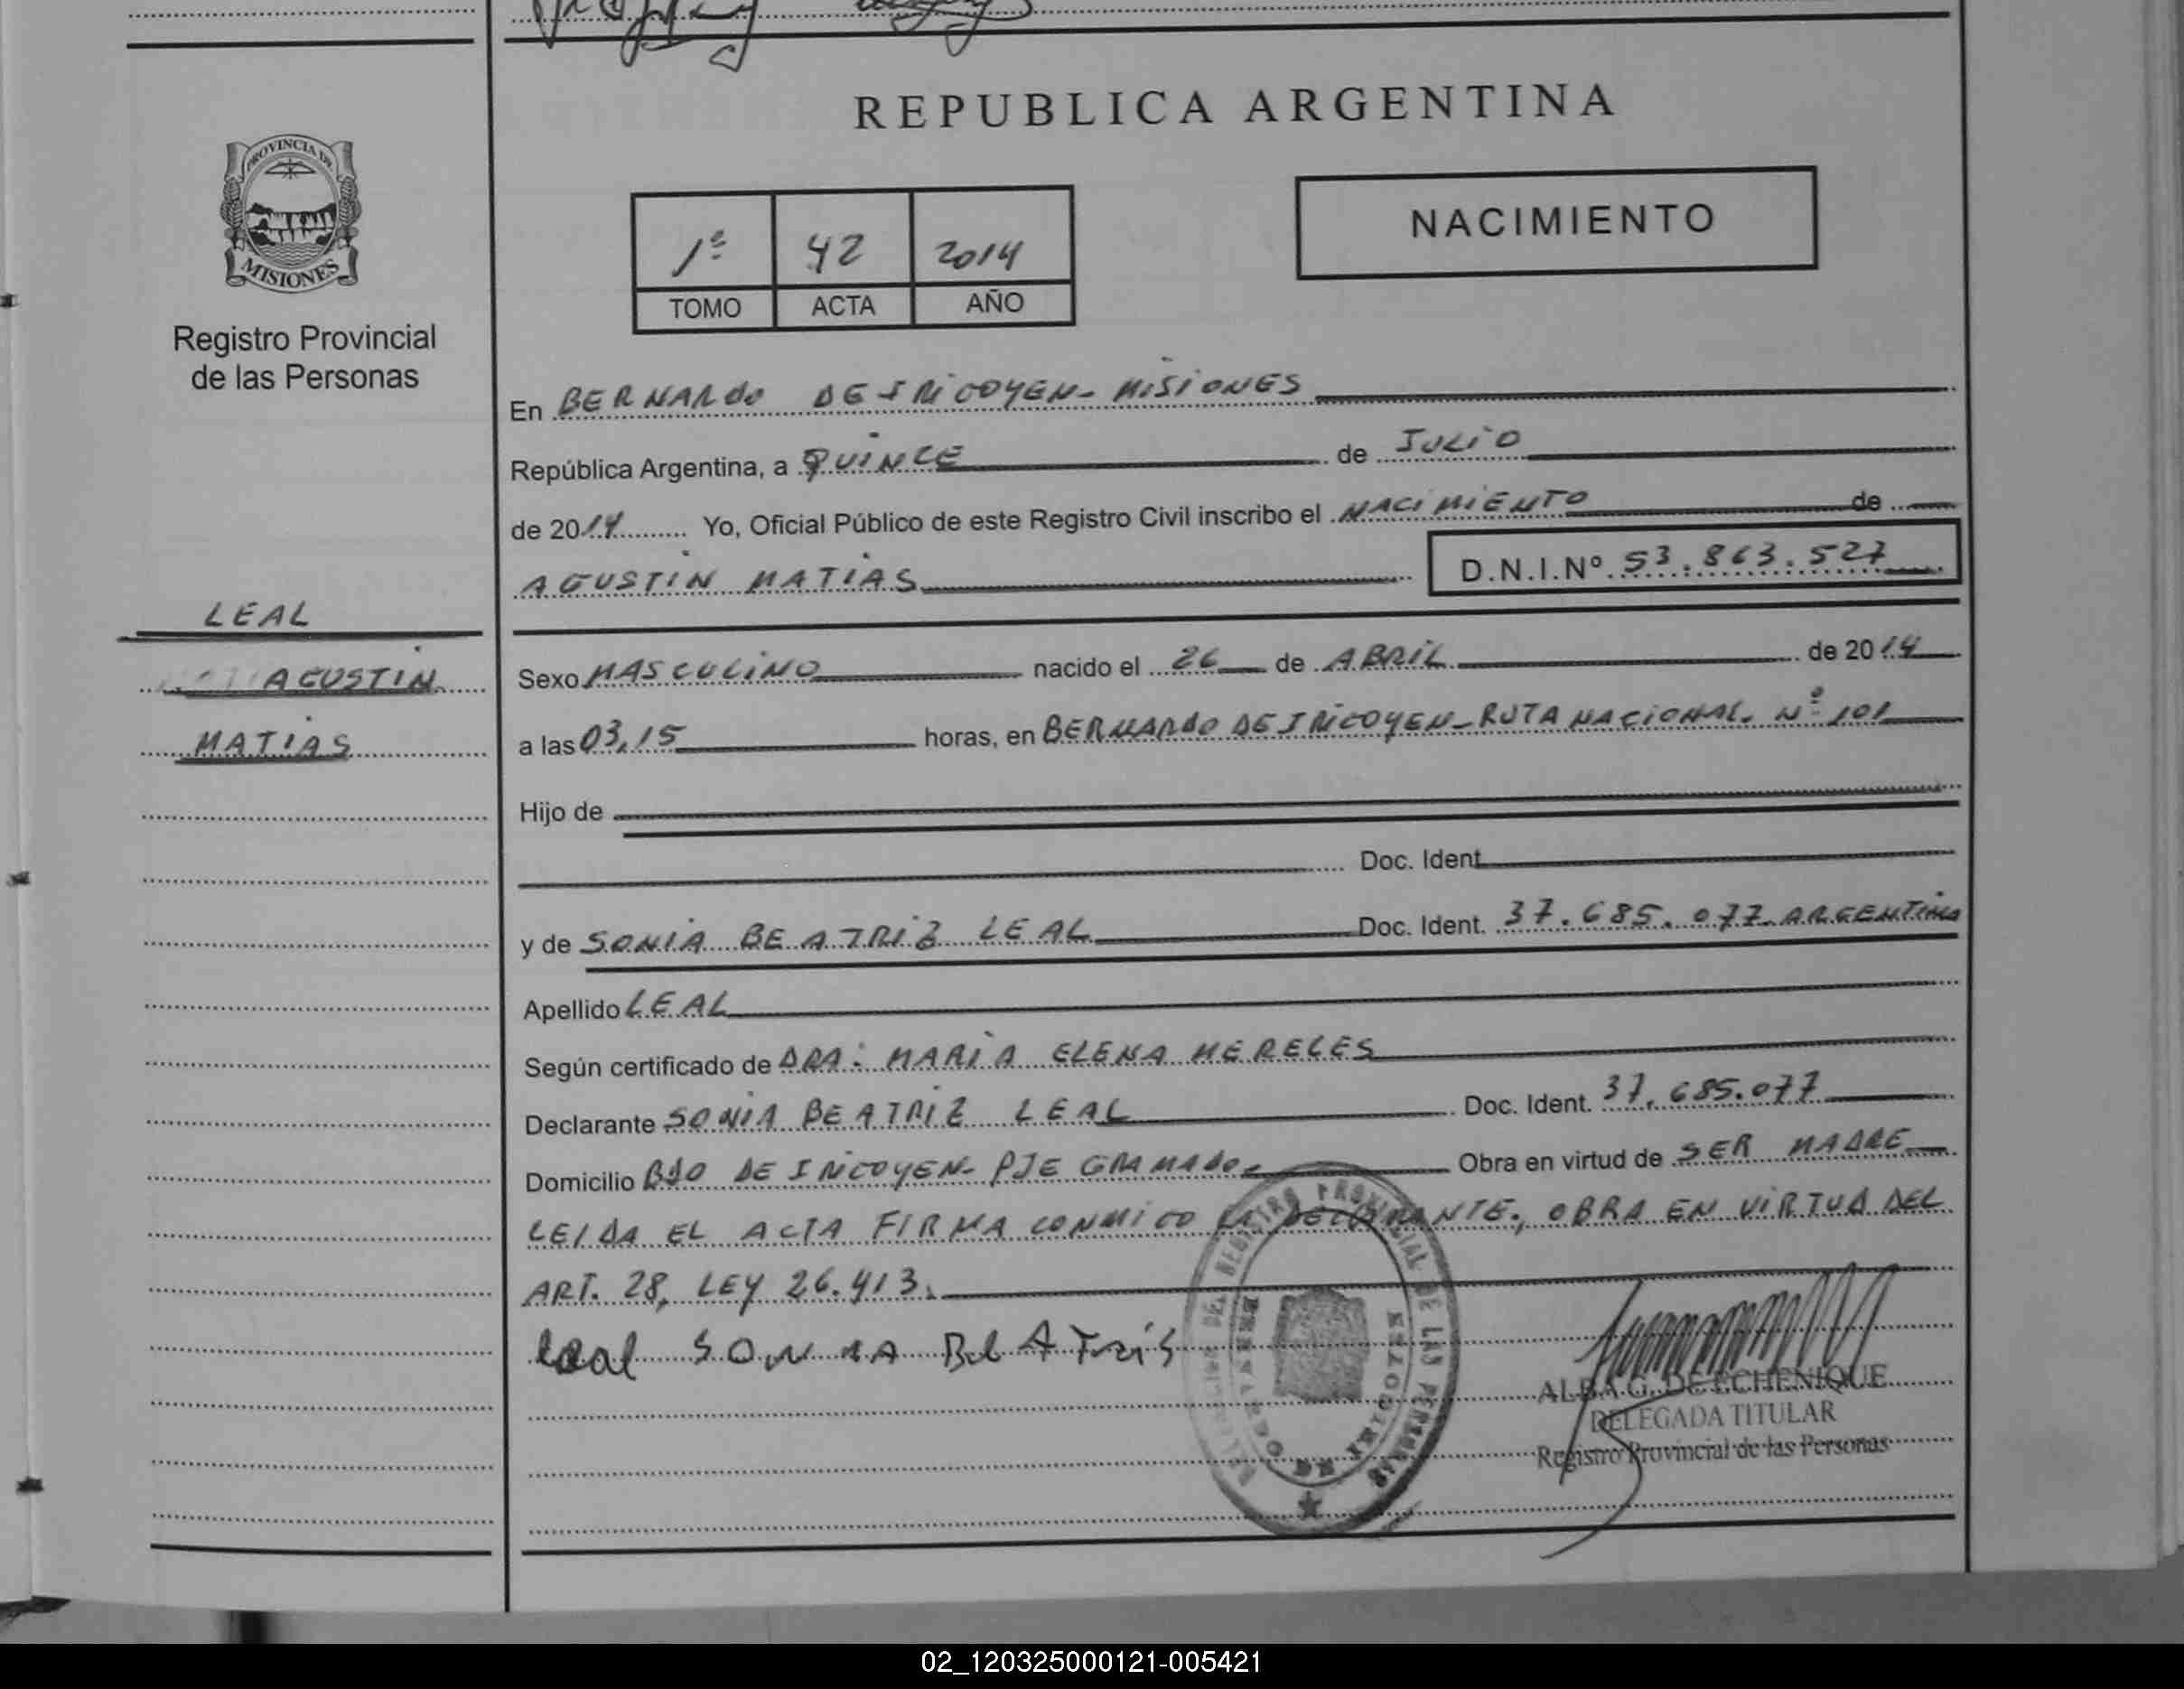 REPUBLICA ARGENTINA
PROVINCIA DE
MISIONES
Registro Provincial
de las Personas
1º 42 2014
TOMO ACTA AÑO
NACIMIENTO
En BERNARDO DE IRICOYEN - MISIONES
República Argentina, a QUINCE de JULIO
de 2014 Yo, Oficial Público de este Registro Civil inscribo el NACIMIENTO de
AGUSTIN MATIAS D.N.I.Nº 53.863.527
LEAL
AGUSTIN
MATIAS
Sexo MASCULINO nacido el 26 de ABRIL de 2014
a las 03,15 horas, en BERNARDO DE IRICOYEN - RUTA NACIONAL Nº 101
Hijo de
Doc. Ident
y de SONIA BEATRIZ LEAL Doc. Ident. 37.685.077 ARGENTINA
Apellido LEAL
Según certificado de DRA: MARIA ELENA MERELES
Declarante SONIA BEATRIZ LEAL Doc. Ident. 37.685.077
Domicilio BDO DE IRICOYEN - PJE GRAMADO Obra en virtud de SER MADRE
LEIDA EL ACTA FIRMA CONMIGO LA DECLARANTE, OBRA EN VIRTUD DEL
ART. 28, LEY 26.413.
leal SONIA BEATris
ALBA G. DE ECHENIQUE
DELEGADA TITULAR
Registro Provincial de las Personas
02_120325000121-005421